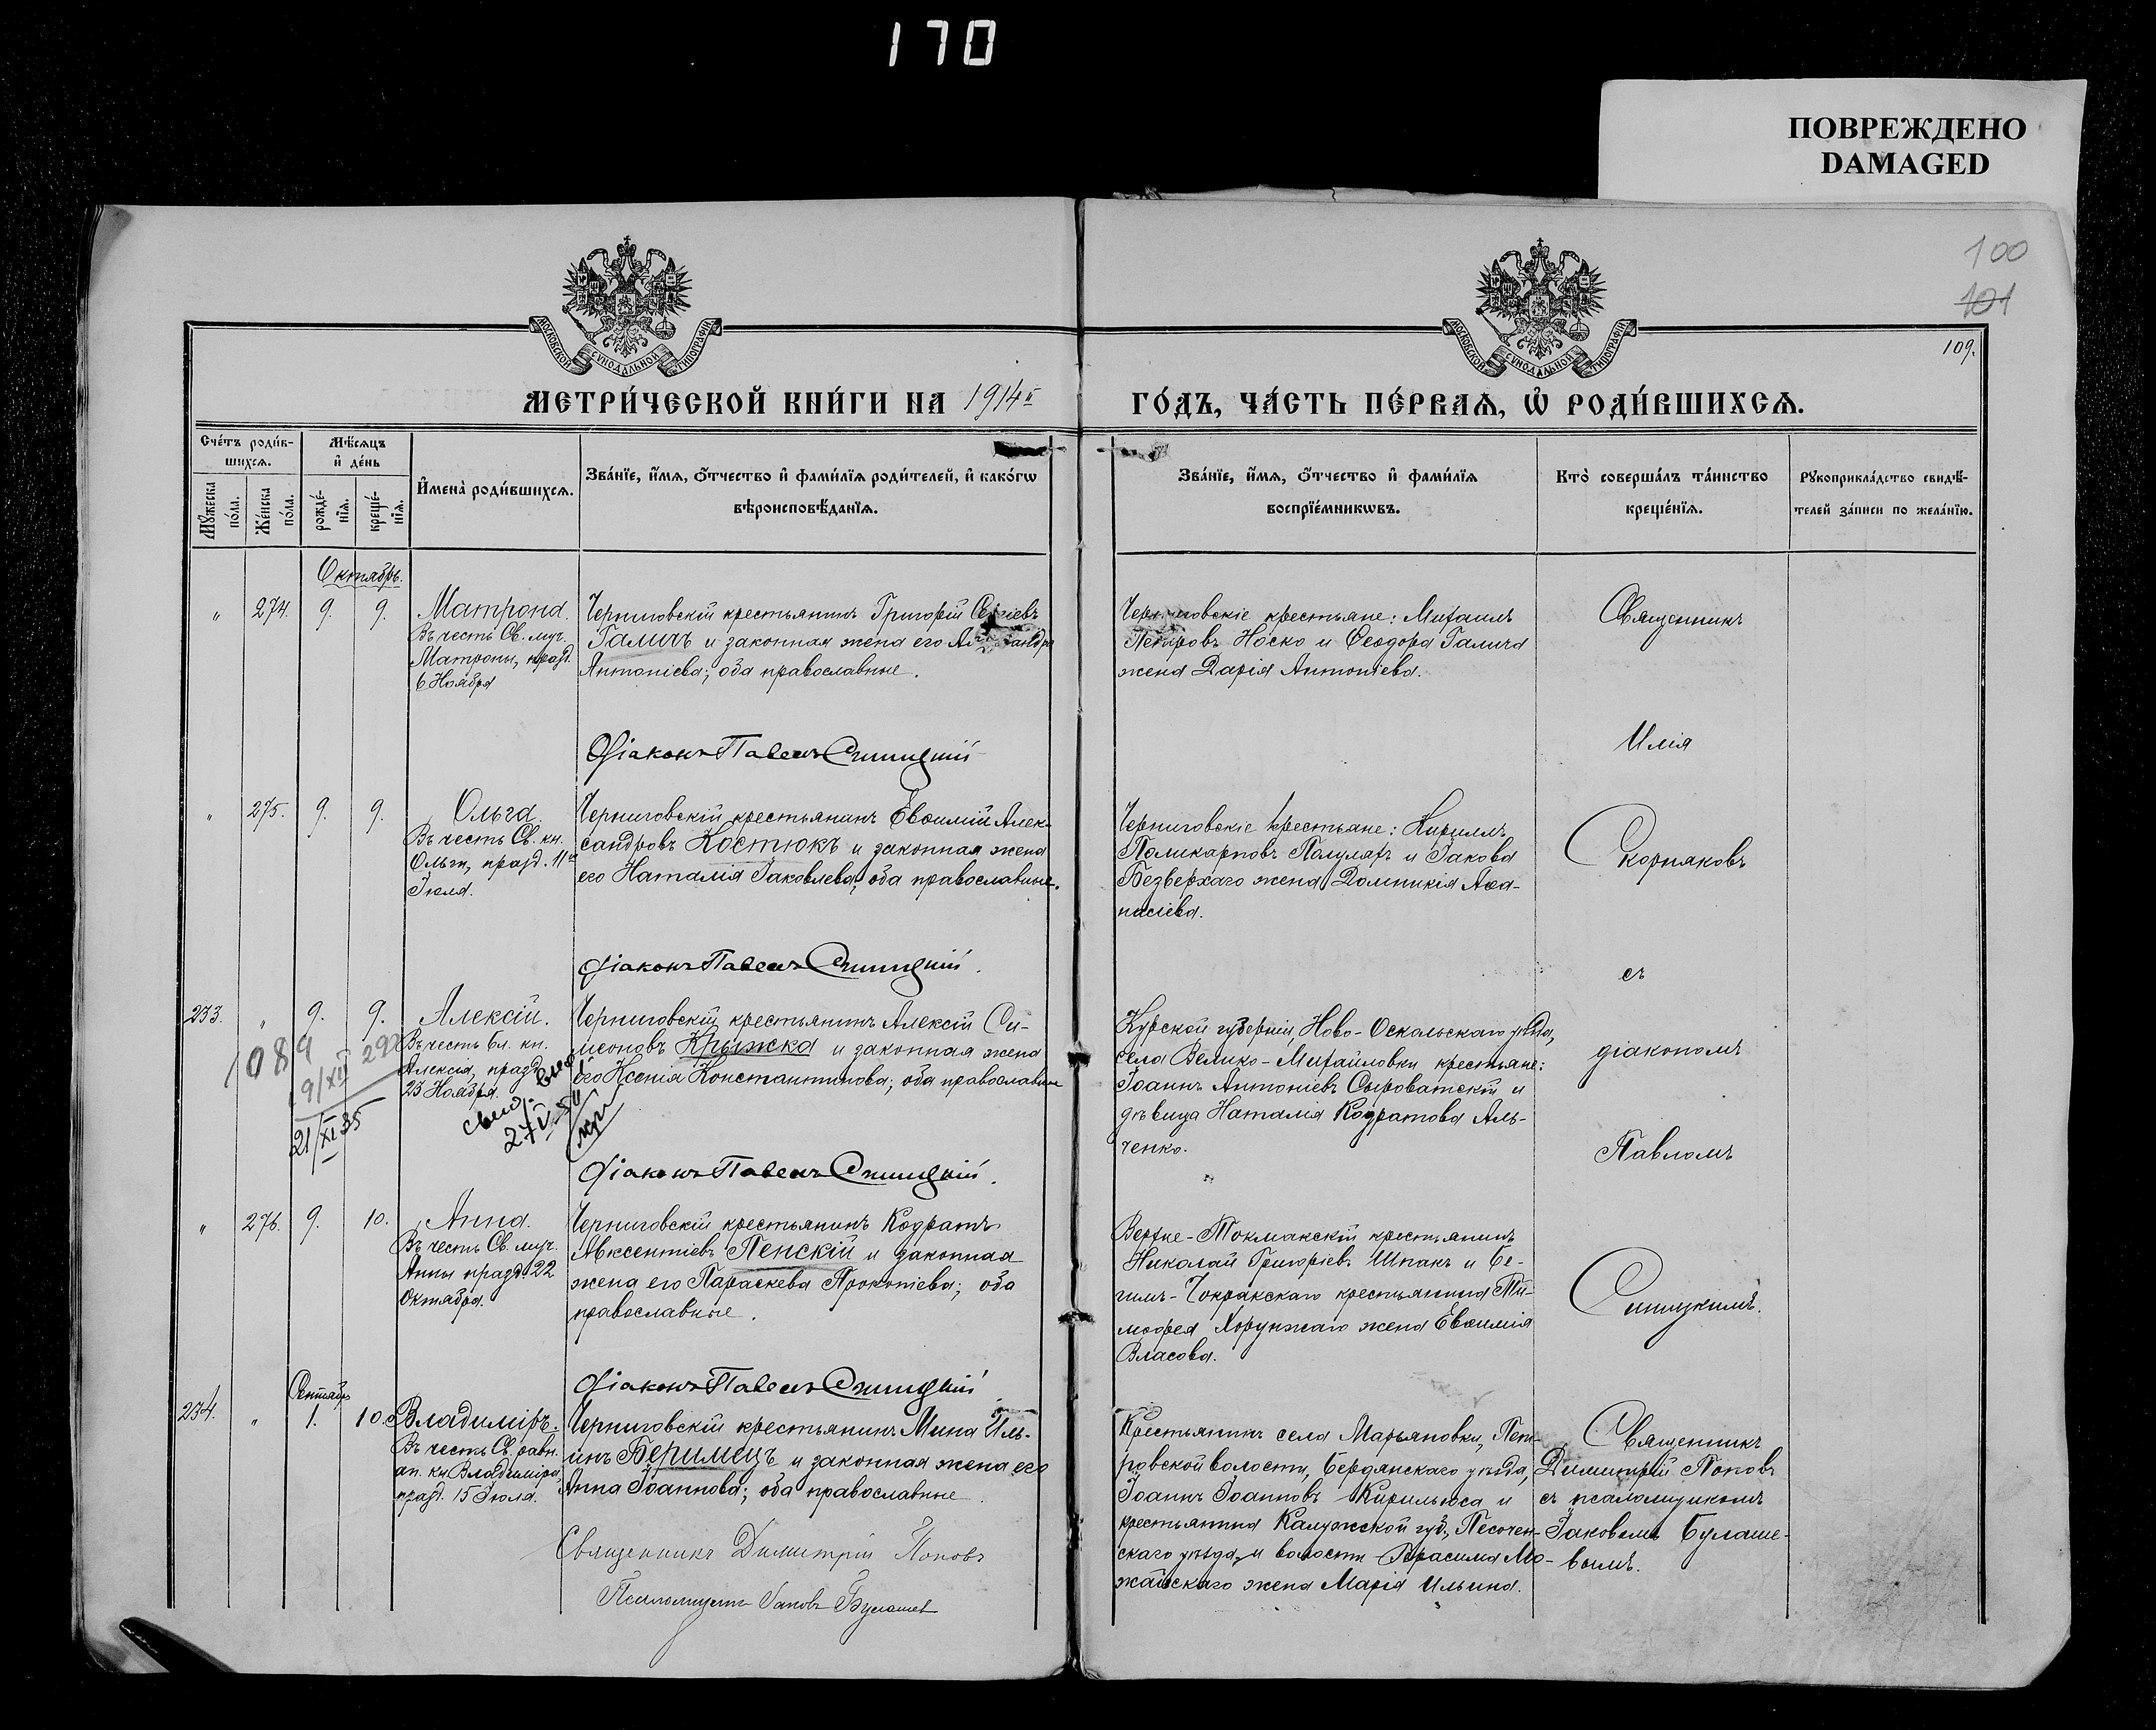 170
ПОВРЕЖДЕНО
DAMAGED
100
101
109.
МОСКОВСКОЙ СѴНОДАЛЬНОЙ ТИПОГРАФІИ
МОСКОВСКОЙ СѴНОДАЛЬНОЙ ТИПОГРАФІИ
МЕТРИ́ЧЕСКОЙ КНИ́ГИ НА 1914й
ГО́ДЪ, ЧА́СТЬ ПЕ́РВАѦ, Ѡ҆ РОДИ́ВШИХСѦ.
Сче́тъ роди́в-
шихсѧ.
Мѣ́сѧцъ
и҆ де́нь
Мꙋ́жеска
по́ла.
Же́нска
по́ла.
рожде́-
нїѧ.
креще́-
нїѧ.
И҆мена̀ роди́вшихсѧ.
Зва́нїе, и҆́мѧ, ѻ҆́тчество и҆ фами́лїѧ роди́телей, и҆ како́гѡ
вѣроисповѣ́данїѧ.
Зва́нїе, и҆́мѧ, ѻ҆́тчество и҆ фами́лїѧ
воспрїе́мникѡвъ.
Кто̀ соверша́лъ та́инство
креще́нїѧ.
Рꙋкоприкла́дство свидѣ́-
телей за́писи по жела́нїю.
Октябрь.
" 274. 9. 9.
Матрона.
Въ честь Св. муч.
Матроны, празд.
6 Ноября
Черниговскій крестьянинъ Григорій Сергіевъ
Галичъ и законная жена его Александра
Антоніева; оба православные.
Діаконъ Павелъ Синицкій
Черниговскіе крестьяне: Михаилъ
Петровъ Носко и Ѳеодора Галича
жена Дарія Антоніева.
Священникъ
Илія
" 275. 9. 9.
Ольга.
Въ честь Св. кн.
Ольги, празд. 11го
Іюля.
Черниговскій крестьянинъ Евѳимій Алек-
сандровъ Костюкъ и законная жена
его Наталія Іаковлева; оба православные.
Діаконъ Павелъ Синицкій.
Черниговскіе крестьяне: Кириллъ
Поликарповъ Полуляхъ и Іакова
Безверхаго жена Домникія Аѳа-
насіева.
Скорняковъ
съ
233. " 9. 9.
Алексій.
Въ честь бл. кн.
Алексія, празд.
23 Ноября.
Черниговскій крестьянинъ Алексій Си-
меоновъ Крыжка и законная жена
его Ксенія Константинова; оба православные
1089
9/XII 29
21/XI 35
27
Діаконъ Павелъ Синицкій.
Курской губерніи, Ново-Оскольскаго уѣзда,
села Велико-Михайловки крестьяне:
Іоаннъ Антоніевъ Сыроватскій и
дѣвица Наталія Кодратова Аль-
ченко.
діакономъ
Павломъ
" 276. 9. 10.
Анна.
Въ честь Св. муч.
Анны празд. 22
Октября.
Черниговскій крестьянинъ Кодратъ
Авксентіевъ Пенскій и законная
жена его Параскева Прокопіева; оба
православные.
Діаконъ Павелъ Синицкій
Верхне-Токмакскій крестьянинъ
Николай Григоріевъ Шпакъ и Бе-
гимъ-Чокракскаго крестьянина Ти-
моѳея Хорунжаго жена Евѳимія
Власова.
Синицкимъ.
Сентябрь
234. " 1. 10.
Владиміръ.
Въ честь Св. равн.
ап. кн. Владиміра,
празд. 15 Іюля.
Черниговскій крестьянинъ Мина Иль-
инъ Беримецъ и законная жена его
Анна Іоаннова; оба православные.
Священникъ Димитрій Поповъ
Псаломщикъ Іаковъ Булашевъ
Крестьянинъ села Марьяновки, Пет-
ровской волости, Бердянскаго уѣзда,
Іоаннъ Іоанновъ Кирильюса и
крестьянина Калужской губ., Песочен-
скаго уѣзда, и волости Герасима Мо-
жайскаго жена Марія Ильина.
Священникъ
Димитрій Поповъ
съ псаломщикомъ
Іаковомъ Булаше-
вымъ.